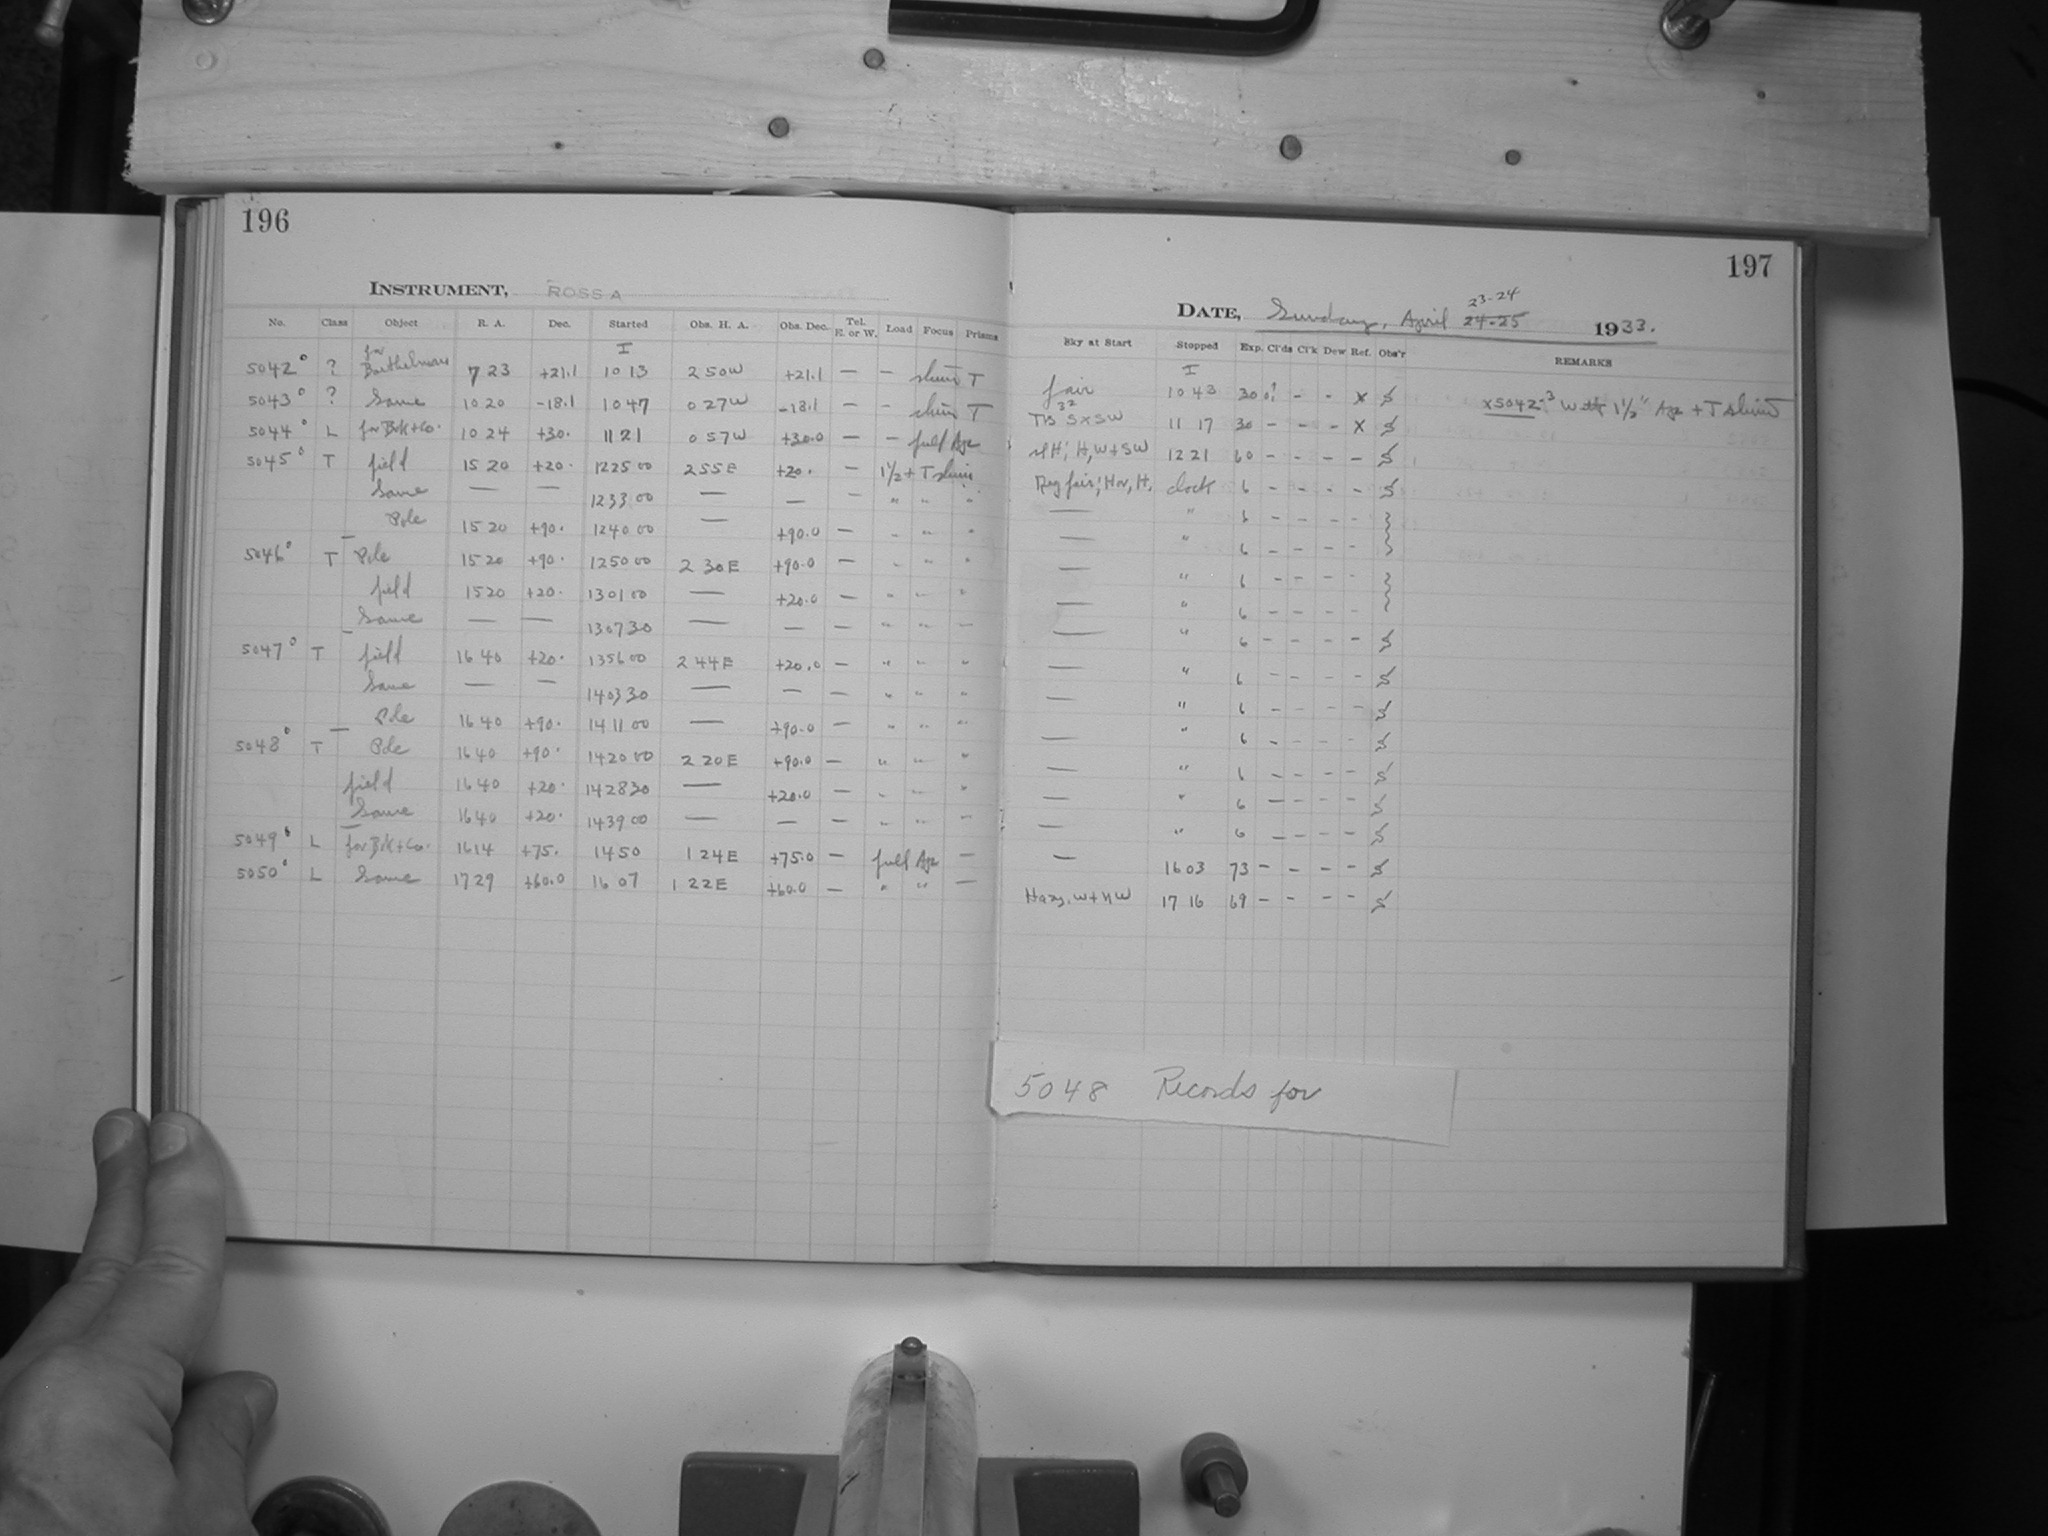 196
INSTRUMENT, ROSS A
No. Class Object R. A. Dec. Started Obs. H. A. Obs. Dec. Tel. E. or W. Load Focus Prisms
I
5042° ? for 7 23 +21.1 10 13 2 50W +21.1 — — T
5043° ? Same 10 20 -18.1 10 47 0 27W -18.1 — - T
5044° L for Brk+Co. 10 24 +30. 11 21 0 57W +30.0 — — full Ap
5045° T field 15 20 +20. 12 25 00 2 55E +20. — 1½ + T
Same — — 12 33 00 — — — " " "
Pole 15 20 +90. 12 40 00 — +90.0 — " " "
5046° T Pole 15 20 +90. 12 50 00 2 30E +90.0 — " " "
field 15 20 +20. 13 01 00 — +20.0 — " " "
Same — — 13 07 30 — — — " " —
5047° T field 16 40 +20. 13 56 00 2 44E +20.0 — " " "
Same — — 14 03 30 — — — " " "
Pole 16 40 +90. 14 11 00 — +90.0 — " " "
5048° T Pole 16 40 +90. 14 20 00 2 20E +90.0 — " " "
field 16 40 +20. 14 28 30 — +20.0 — " " "
Same 16 40 +20. 14 39 00 — — — " " "
5049° L for Brk+Co. 16 14 +75. 14 50 1 24E +75.0 — full Ap —
5050° L Same 17 29 +60.0 16 07 1 22E +60.0 — " " —
197
DATE, Sunday, April 23-24 24-25 1933.
Sky at Start Stopped Exp. Cl'ds Cl'k Dew Ref. Obs'r REMARKS
I
fair 10 43 30 - - x S x5042-3 with 1½" Ap + T
32 SxSW 11 17 30 - - - x S
H, W+SW 12 21 60 - - - - S
fair; Hor, H. clock 6 - - - - S
— " 6 - - - -
— " 6 - - - -
— " 6 - - - -
— " 6 - - - -
— " 6 - - - - S
— " 6 - - - - S
— " 6 - - - - S
— " 6 - - - - S
— " 6 - - - - S
— " 6 - - - - S
— " 6 - - - - S
— 16 03 73 - - - - S
Hazy, W+NW 17 16 69 - - - - S
5048 Records for